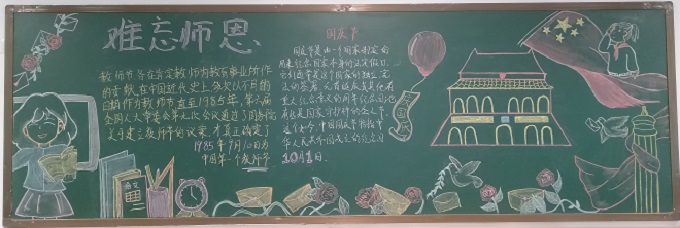 难忘师恩
教师节旨在肯定教师为教育事业所作
的贡献,在中国近代史上,多次以不同的
日期作为教师节,直至1985年,第六届
全国人大常委会第九次会议通过了国务院
关于建立教师节的议案,才真正确定了
1985年9月10日为
中国第一个教师节
国庆节
国庆节是由一个国家制定的
用来纪念国家本身的法定假日
它们通常是这个国家的独立、宪
中国国庆节特指中
华人民共和国成立的纪念日
10月1日.
语文